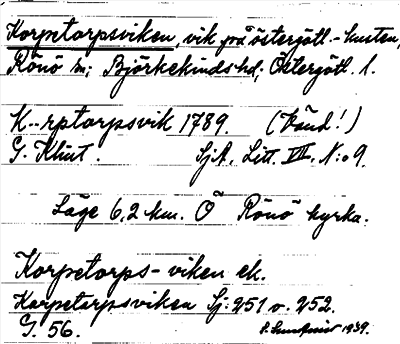 Korpetorpsviken, vik på östergötl.-kusten,
Rönö sn; Björkekinds hd; Östergötl. l.
K--rptorpsvik 1789. (Känd!)
G. Klint. SjA, Litt. VII, N:o 9.
Läge 6,2 km. Ö Rönö kyrka.
Korpetorps-viken ek.
Korpetorpsviken Sj: 251 o. 252.
G. 56. 1939.